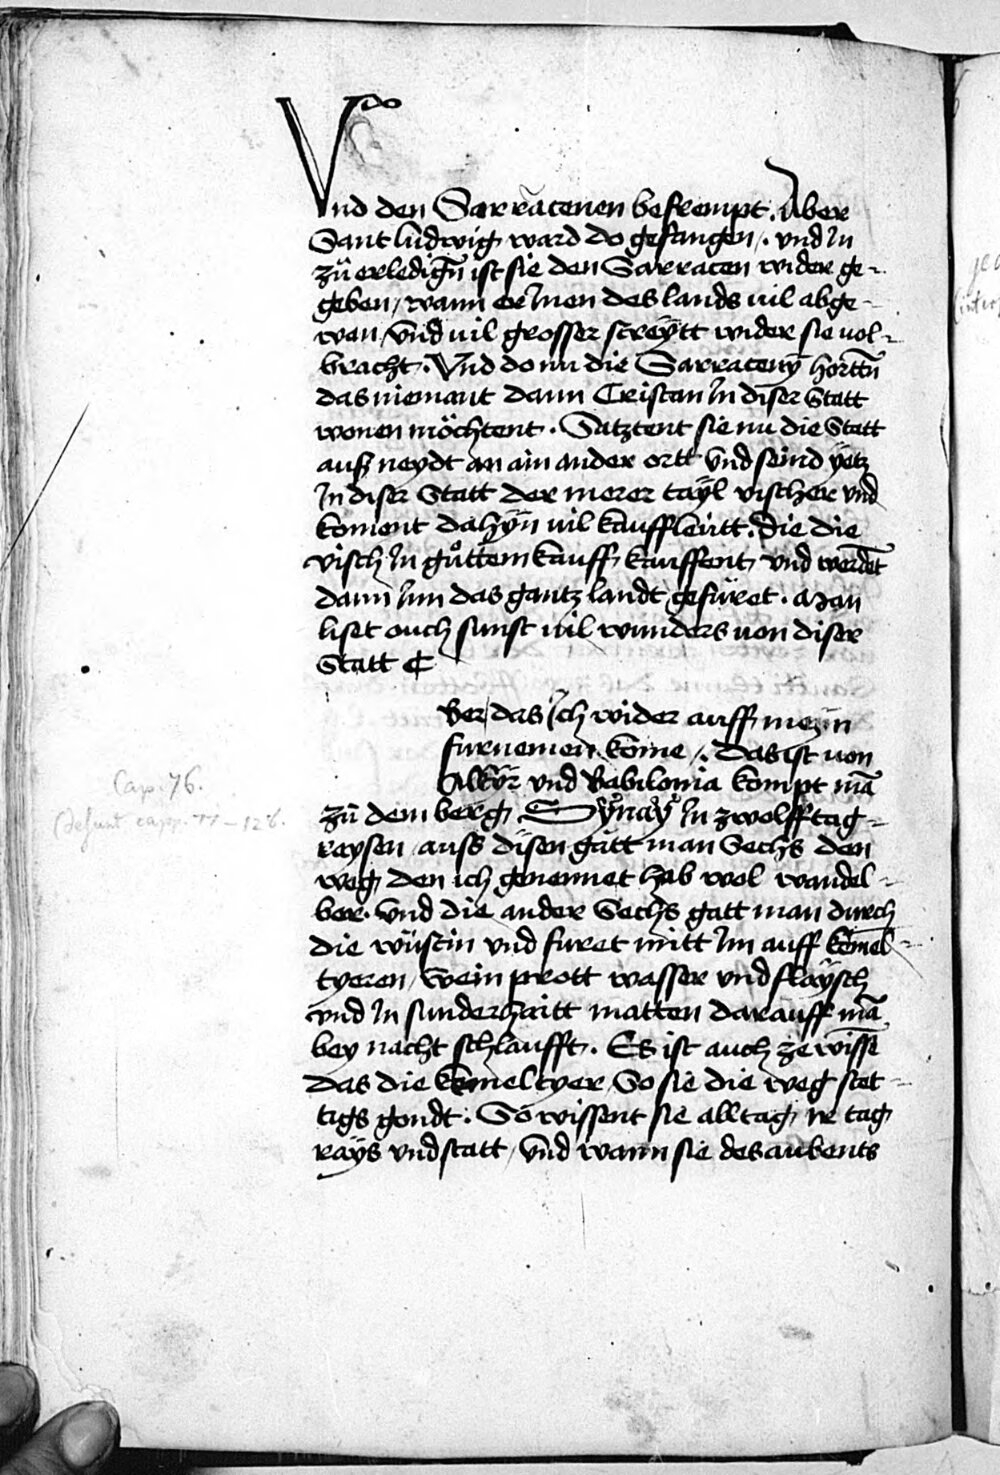 Vnd den Sarracenen befrempt. Aber
Sant ludwig ward do gefangen /. vnd In
zů erledigñ ist sie den Sarracen wider ge-
geben / wann er Inen des lands uil abge-
wan / vnd uil grosser streÿtt wider sie uol-
bracht. Vnd do nu die Sarracenÿ horttñ
das niemant dann Cristan In diser Statt
wonen möchtent. Satztent sie nu die Statt
ausz neydt an ain ander ortt vnd seind ÿetz
In diser Statt der merer taÿl vischer vnd
koment dahÿn uil kauffleütt. die die
visch In gůttem kauff kauffent vnd werdēt
dann Inn das gantz landt gefüret. Man
liset ouch sunst uil wunders von diser
Statt
ber das Ich wider auff mein
furnemen kome /. Das ist von
Alkÿr vnd Babilonia kompt mā
zů dem berg Sÿnaÿ In zwolff tag-
reysen / auss disen gatt man Sechs den
weg den ich genennet hab wol wandel-
ber. vnd die ander Sechs gatt man durch
die wüstin vnd furet mitt Im auff kemel-
tyeren / wein prott wasser vnd flaÿsch
vnd In sunderhaitt matten darauff mā
bey nacht schlaufft. Es ist auch ze wissē
das die kemeltyer / So sie die weg stet-
tigs gondt. So wissent sie all tag Ir tag
raÿs vnd statt / vnd wann sie des aubents
Cap. 76.
(desunt capp. 77 – 126.